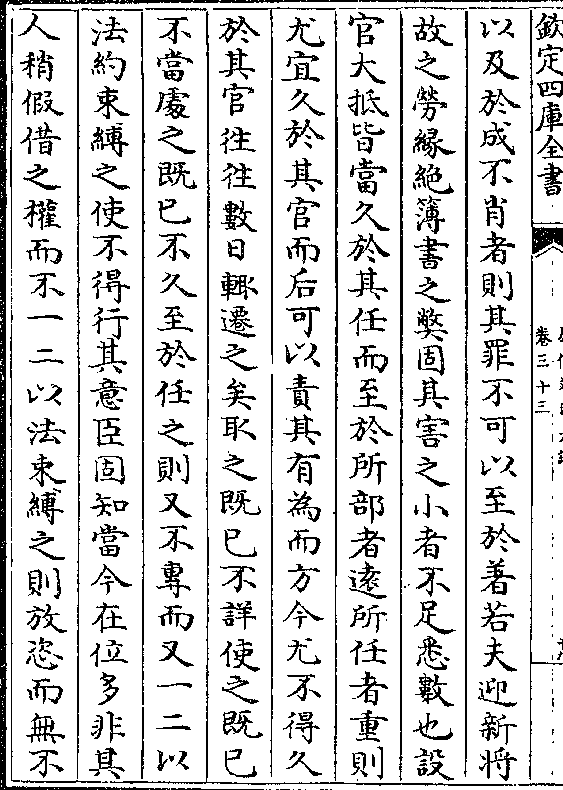 欽定四庫全書
卷三十三
以及於成不肖者則其罪不可以至於著若夫迎新將
故之勞縁絶簿書之獘固其害之小者不足悉數也設
官大抵皆當久於其任而至於所部者逺所任者重則
尤宜久於其官而后可以責其有為而方今尤不得久
於其官徃徃數日輙遷之矣取之既已不詳使之既已
不當處之既已不久至於任之則又不專而又一二以
法約束縛之使不得行其意臣固知當今在位多非其
人稍假借之權而不一二以法束縛之則放恣而無不